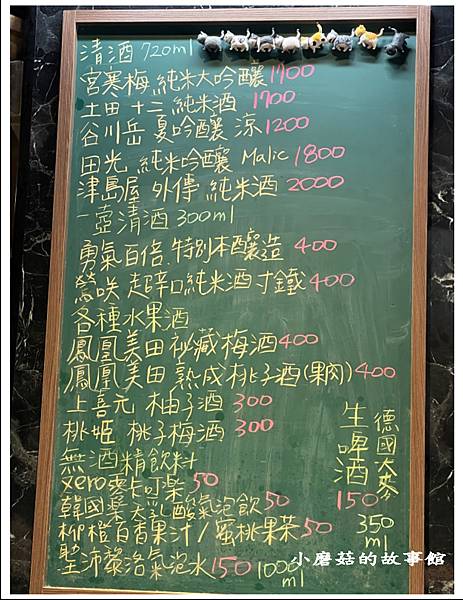 清酒720ml
宮寒梅 純米大吟釀1700
土田 十二 純米酒 1700
谷川岳 夏吟釀 涼1200
田光 純米吟釀 Malic 1800
津島屋 外傳 純米酒 2000
一壺清酒300ml
勇氣百倍.特別本釀造 400
鶯咲 超辛口純米酒寸鐵400
各種水果酒
鳳凰美田 祕藏梅酒400
鳳凰美田 熟成桃子酒(果肉)400
上喜元 柚子酒 300
桃姬 桃子梅酒300
無酒精飲料
xero麥卡叮柴50
韓國樂天乳酸氣泡飲50
柳橙百香果汁/蜜桃果茶50
聖沛黎洛氣泡水150 1000ml
德國大麥
生啤酒
150
350ml
小磨菇的故事館